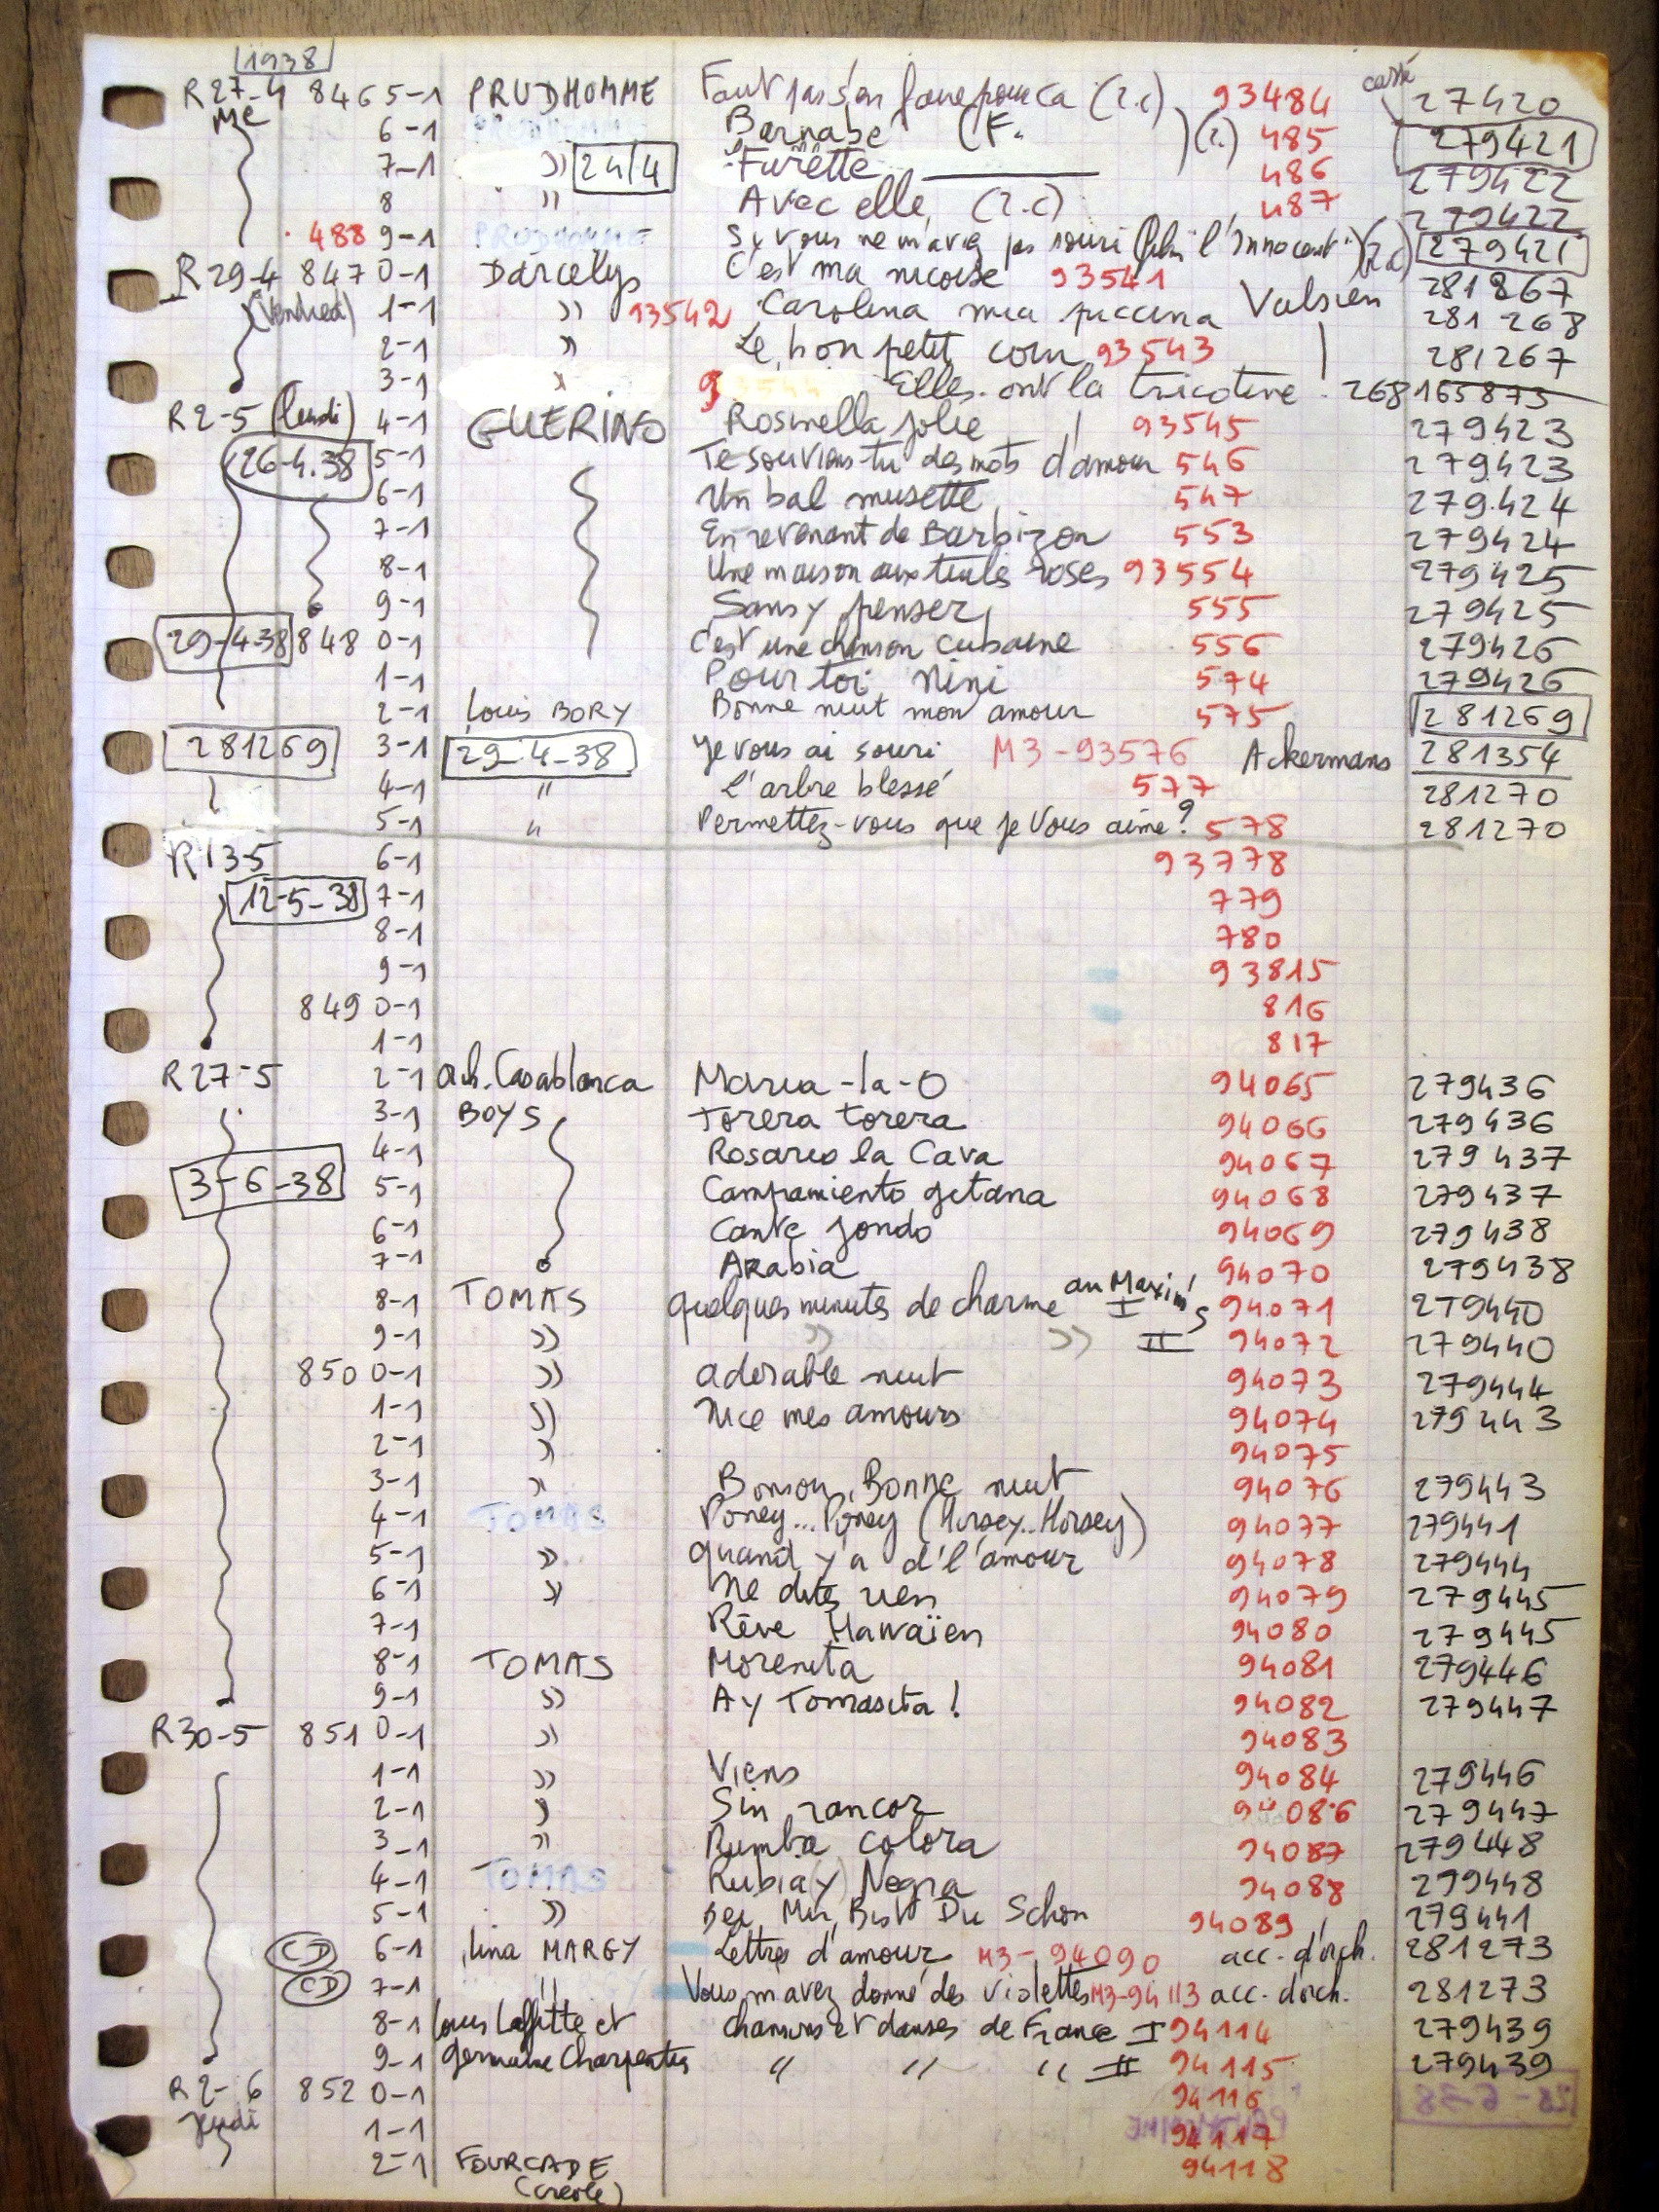 1938
R27-4 8465-1 PRUDHOMME Faut pas s'en faire pour ca (2.c) 93484 cassé 27420
Me 6-1 PRUDHOMME Barnabé (F. )(2.) 485 279421
7-1 » 24/4 Furette 486 279422
8 " Avec elle (2.c) 487 279422
488 9-1 PRUDHOMME Si vous ne m'aviez pas souri (film "l'Innocent") (2.c) 279421
R29-4 8470-1 Darcelys C'est ma nicoise 93541 281867
(Vendredi) 1-1 » 93542 Carolina mia piccina Valsien 281268
2-1 » Le bon petit coin 93543 281267
3-1 » 93544 Elles ont la tricotine 268 165875
R2-5 (lundi) 4-1 GUERINO Rosinella jolie 93545 279423
26-4.38 5-1 Te souviens-tu des mots d'amour 546 279423
6-1 Un bal musette 547 279.424
7-1 En revenant de Barbizon 553 279424
8-1 Une maison aux tuiles roses 93554 279425
9-1 Sans y penser 555 279425
29-4-38 848 0-1 C'est une chanson cubaine 556 279426
1-1 Pour toi Nini 574 279426
2-1 Louis BORY Bonne nuit mon amour 575 281269
281269 3-1 29-4-38 Je vous ai souri M3-93576 Ackermans 281354
4-1 " L'arbre blessé 577 281270
5-1 " Permettez-vous que je vous aime? 578 281270
R 13-5 6-1 93778
12-5-38 7-1 779
8-1 780
9-1 93815
849 0-1 816
1-1 817
R27-5 2-1 Och. Casablanca Maria-la-O 94065 279436
3-1 BOYS Torera torera 94066 279436
4-1 Rosario la Cava 94067 279437
3-6-38 5-1 Campamiento gitana 94068 279437
6-1 Cante jondo 94069 279438
7-1 Arabia 94070 279438
8-1 TOMAS Quelques minutes de charme au Maxim's I 94071 279440
9-1 » » » II 94072 279440
850 0-1 » Adorable nuit 94073 279444
1-1 » Nice mes amours 94074 279443
2-1 » 94075
3-1 » Bonsoir, Bonne nuit 94076 279443
4-1 TOMAS Poney...Poney (Horsey..Horsey) 94077 279441
5-1 » Quand y'a d'l'amour 94078 279444
6-1 » Ne dites rien 94079 279445
7-1 Rêve Hawaïen 94080 279445
8-1 TOMAS Morenita 94081 279446
9-1 » Ay Tomasita! 94082 279447
R30-5 851 0-1 » 94083
1-1 » Viens 94084 279446
2-1 » Sin rancor 94086 279447
3-1 » Rumba colora 94087 279448
4-1 TOMAS Rubia(y) Negra 94088 279448
5-1 » Bei Mir Bist Du Schon 94089 279441
CD 6-1 Lina MARGY Lettres d'amour M3-94090 acc. d'orch. 281273
CD 7-1 " Vous m'avez donné des violettes M3-94113 acc. d'orch. 281273
8-1 Louis Laffitte et Chansons et danses de France I 94114 279439
9-1 Germaine Charpentier " " " II 94115 279439
R2-6 852 0-1 94116
Jeudi 1-1 94117
2-1 FOURCADE 94118
(créole)